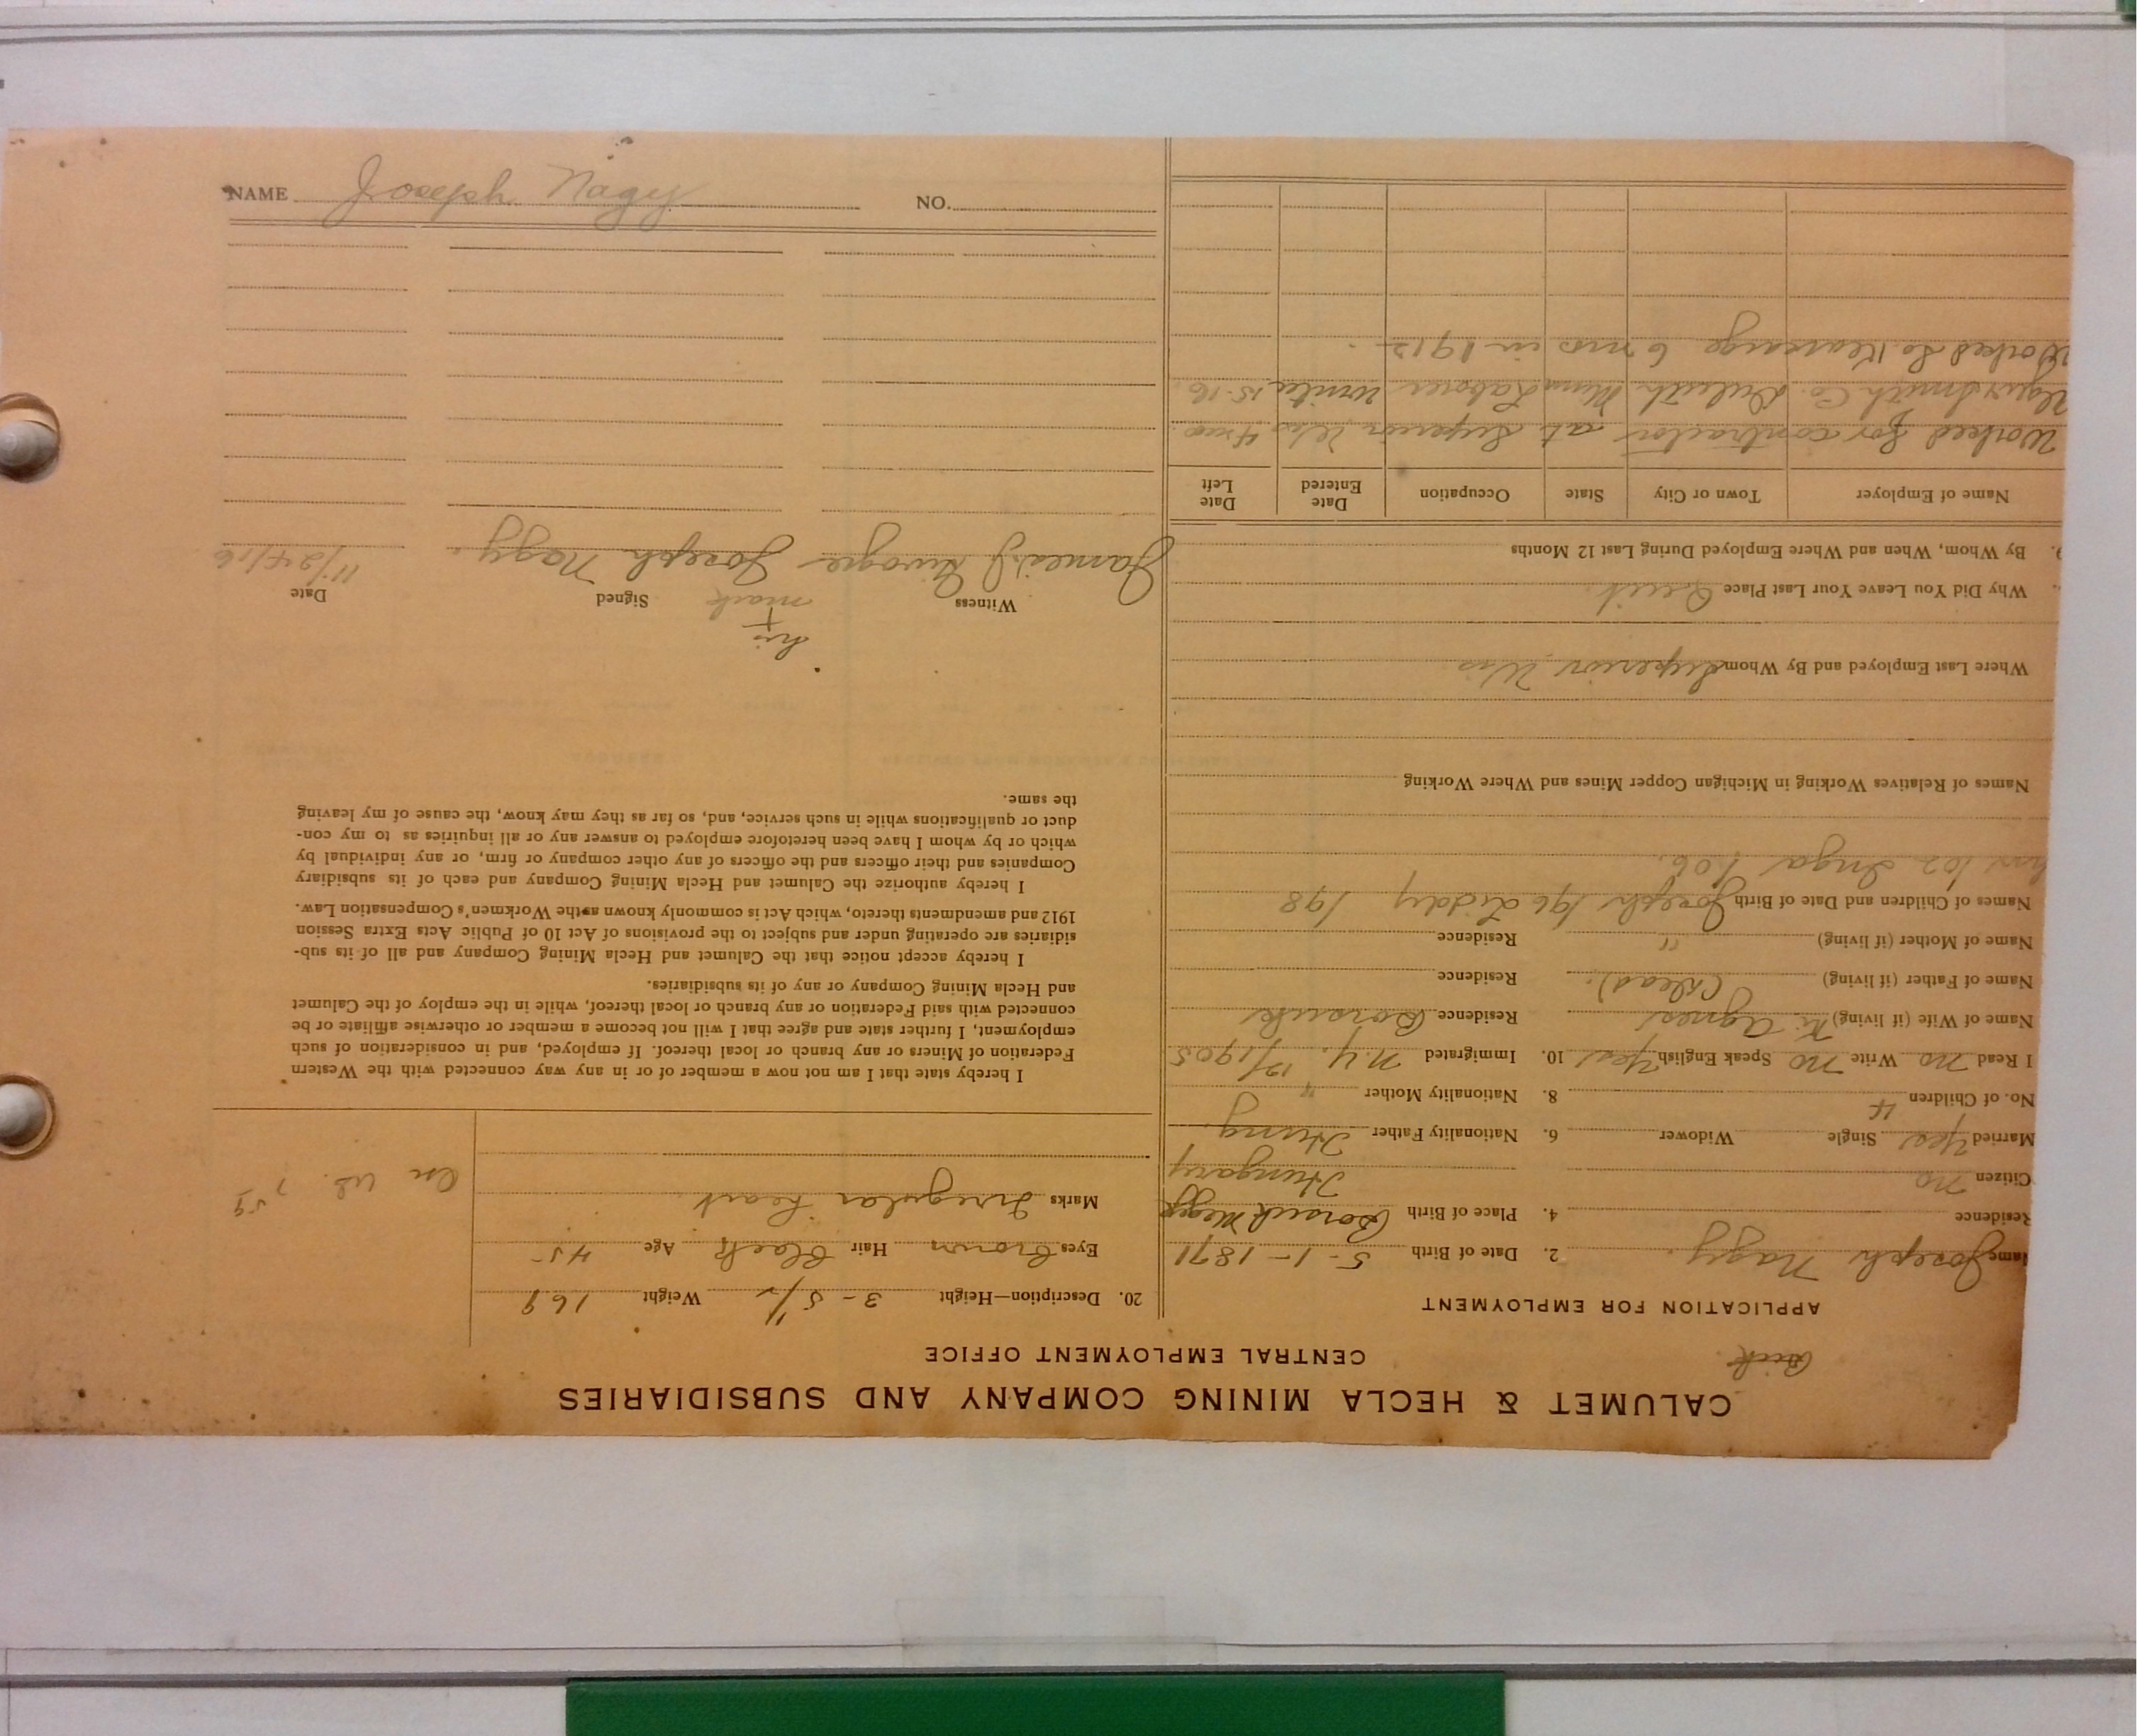 CALUMET & HECLA MINING COMPANY AND SUBSIDIARIES
CENTRAL EMPLOYMENT OFFICE
APPLICATION FOR EMPLOYMENT
Name Joseph Nagy. 2. Date of Birth 5-1-1871
Residence 4. Place of Birth
Citizen no Hungary
Married Yes Single Widower 6. Nationality Father Hung.
No. of Children 4 8. Nationality Mother "
I Read no Write no Speak English Yes 10. Immigrated N.Y. 12/1905
Name of Wife (if living) Agnes Residence
Name of Father (if living) (Dead). Residence
Name of Mother (if living) " Residence
Names of Children and Date of Birth Joseph 196 Liddy 198
102 Inga 106.
Names of Relatives Working in Michigan Copper Mines and Where Working
Where Last Employed and By Whom Superior Wis.
Why Did You Leave Your Last Place Quit.
9. By Whom, When and Where Employed During Last 12 Months
Name of Employer Town or City State Occupation Date Entered Date Left
Worked for contractor at Superior Wis 4 mos
Smith Co. Duluth Minn Laborer winter 15-16.
Worked So Kearsarge 6 mos in 1912.
20. Description—Height 3-5 1/2" Weight 169
Eyes brown Hair Black Age 45
Marks Irregular heart.
I hereby state that I am not now a member of or in any way connected with the Western
Federation of Miners or any branch or local thereof. If employed, and in consideration of such
employment, I further state and agree that I will not become a member or otherwise affiliate or be
connected with said Federation or any branch or local thereof, while in the employ of the Calumet
and Hecla Mining Company or any of its subsidiaries.
I hereby accept notice that the Calumet and Hecla Mining Company and all of its sub-
sidiaries are operating under and subject to the provisions of Act 10 of Public Acts Extra Session
1912 and amendments thereto, which Act is commonly known as the Workmen's Compensation Law.
I hereby authorize the Calumet and Hecla Mining Company and each of its subsidiary
Companies and their officers and the officers of any other company or firm, or any individual by
which or by whom I have been heretofore employed to answer any or all inquiries as to my con-
duct or qualifications while in such service, and, so far as they may know, the cause of my leaving
the same.
his
+
Witness mark Signed Date
James J. Joseph Nagy. 11/24/16
NAME Joseph Nagy NO.